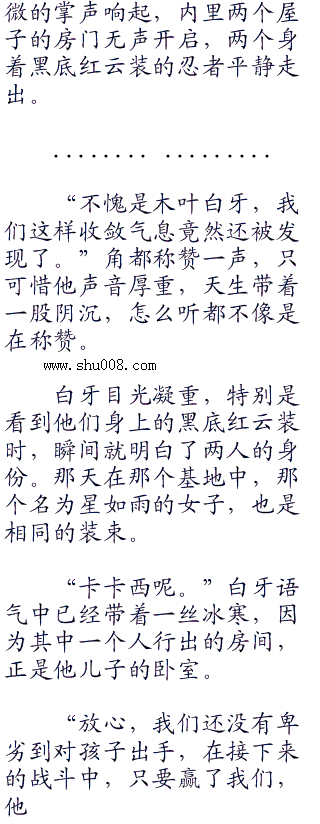 微的掌声响起，内里两个屋
子的房门无声开启，两个身
着黑底红云装的忍者平静走
出。
........ .........
“不愧是木叶白牙，我
们这样收敛气息竟然还被发
现了。”角都称赞一声，只
可惜他声音厚重，天生带着
一股阴沉，怎么听都不像是
在称赞。
www.shu008.com
白牙目光凝重，特别是
看到他们身上的黑底红云装
时，瞬间就明白了两人的身
份。那天在那个基地中，那
个名为星如雨的女子，也是
相同的装束。
“卡卡西呢。”白牙语
气中已经带着一丝冰寒，因
为其中一个人行出的房间，
正是他儿子的卧室。
“放心，我们还没有卑
劣到对孩子出手，在接下来
的战斗中，只要赢了我们，
他